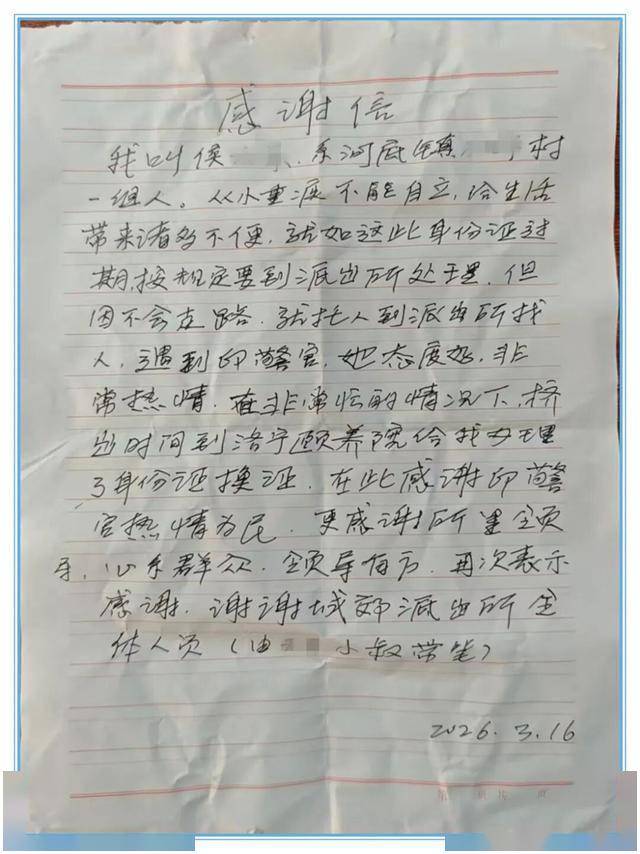 感谢信
我叫侯 系河底镇 村
一组人。从小重残不能自立,给生活
带来诸多不便,就如这此身份证过
期,按规定要到派出所处理,但
因不会走路,就托人到派出所找
人,遇到印警官,她态度好,非
常热情,在非常忙的情况下,挤
出时间到洛宁颐养院给我办理
了身份证换证,在此感谢印警
官热情为民,更感谢所里领
导,心系群众,领导有方,再次表示
感谢,谢谢城郊派出所全
体人员(由 小叔带笔)
2026.3.16
第 页